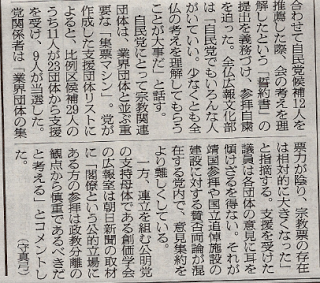 合わせて自民党候補12人を
推薦した際、会の考えを理
解したという「誓約書」の
提出を義務づけ、参拝自粛
を迫った。全仏広報文化部
は「自民党でもいろんな人
がいていい。少なくとも全
仏の考えを理解してもらう
ことが大事だ」と話す。
自民党にとって宗教関連
団体は、業界団体と並ぶ重
要な「集票マシン」。党が
作成した支援団体リストに
よると、比例区候補29人の
うち11人が23団体から支援
を受け、9人が当選した。
党関係者は「業界団体の集
票力が陰り、宗教票の存在
は相対的に大きくなった」
と指摘する。支援を受けた
議員は各団体の意見に耳を
傾けざるを得ない。それが
靖国参拝や国立追悼施設の
建設に対する賛否両論が混
在する党内で、意見集約を
より難しくしている。
一方、連立を組む公明党
の支持母体である創価学会
の広報室は朝日新聞の取材
に「閣僚という公的立場に
ある方の参拝は政教分離の
観点から慎重であるべきだ
と考える」とコメントし
た。
（守真弓）